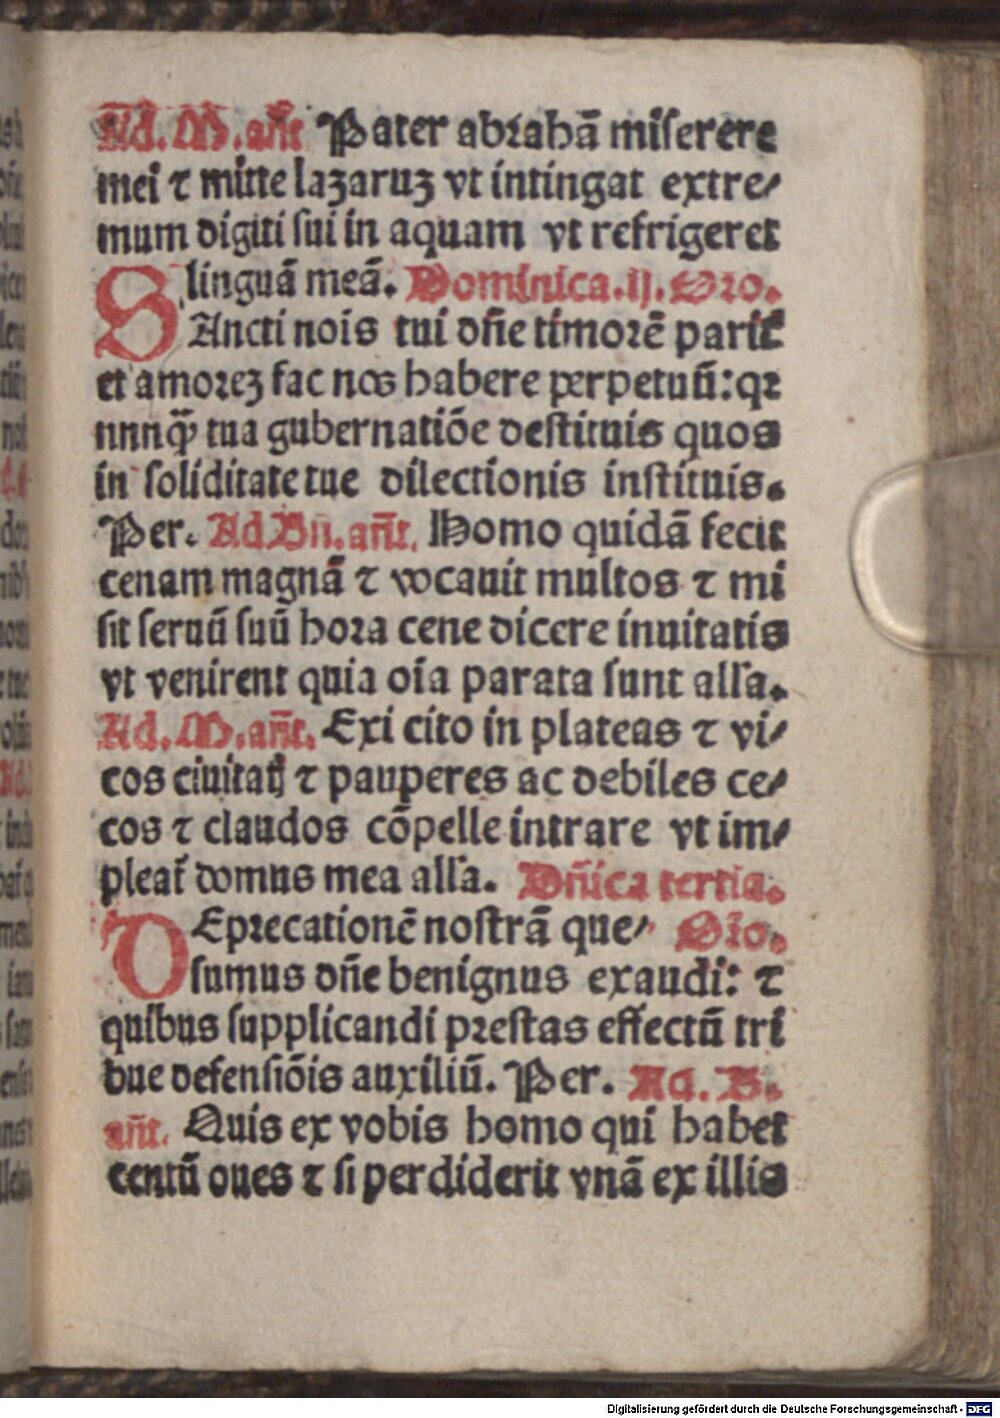 Ad. M. añt Pater abrahã miserere
mei ⁊ mitte lazaruz vt intingat extre⸗
mum digiti sui in aquam vt refrigeret
linguã meã. Dominica.ij. Oro.
SAncti nois tui dñe timorẽ parit̃
et amorez fac nos habere perpetuũ: qꝛ
nnnqꝫ̃ tua gubernatiõe destituis quos
in soliditate tue dilectionis instituis.
Per. Ad Bñ. añt. Homo quidã fecit
cenam magnã ⁊ vocauit multos ⁊ mi
sit seruũ suũ hora cene dicere inuitatis
vt venirent quia oĩa parata sunt alĺa.
Ad. M. añt. Exi cito in plateas ⁊ vi⸗
cos ciuitatꝭ ⁊ pauperes ac debiles ce⸗
cos ⁊ claudos cõpelle intrare vt im⸗
pleat̃ domus mea alĺa. Dñica tertia.
DEprecationẽ nostrã que⸗ Oro.
sumus dñe benignus exaudi: ⁊
quibus supplicandi prestas effectũ tri
bue defensiõis auxiliũ. Per. Ad. B.
añt. Quis ex vobis homo qui habet
centũ oues ⁊ si perdiderit vnã ex illis
Digitalisierung gefördert durch die Deutsche Forschungsgemeinschaft - DFG